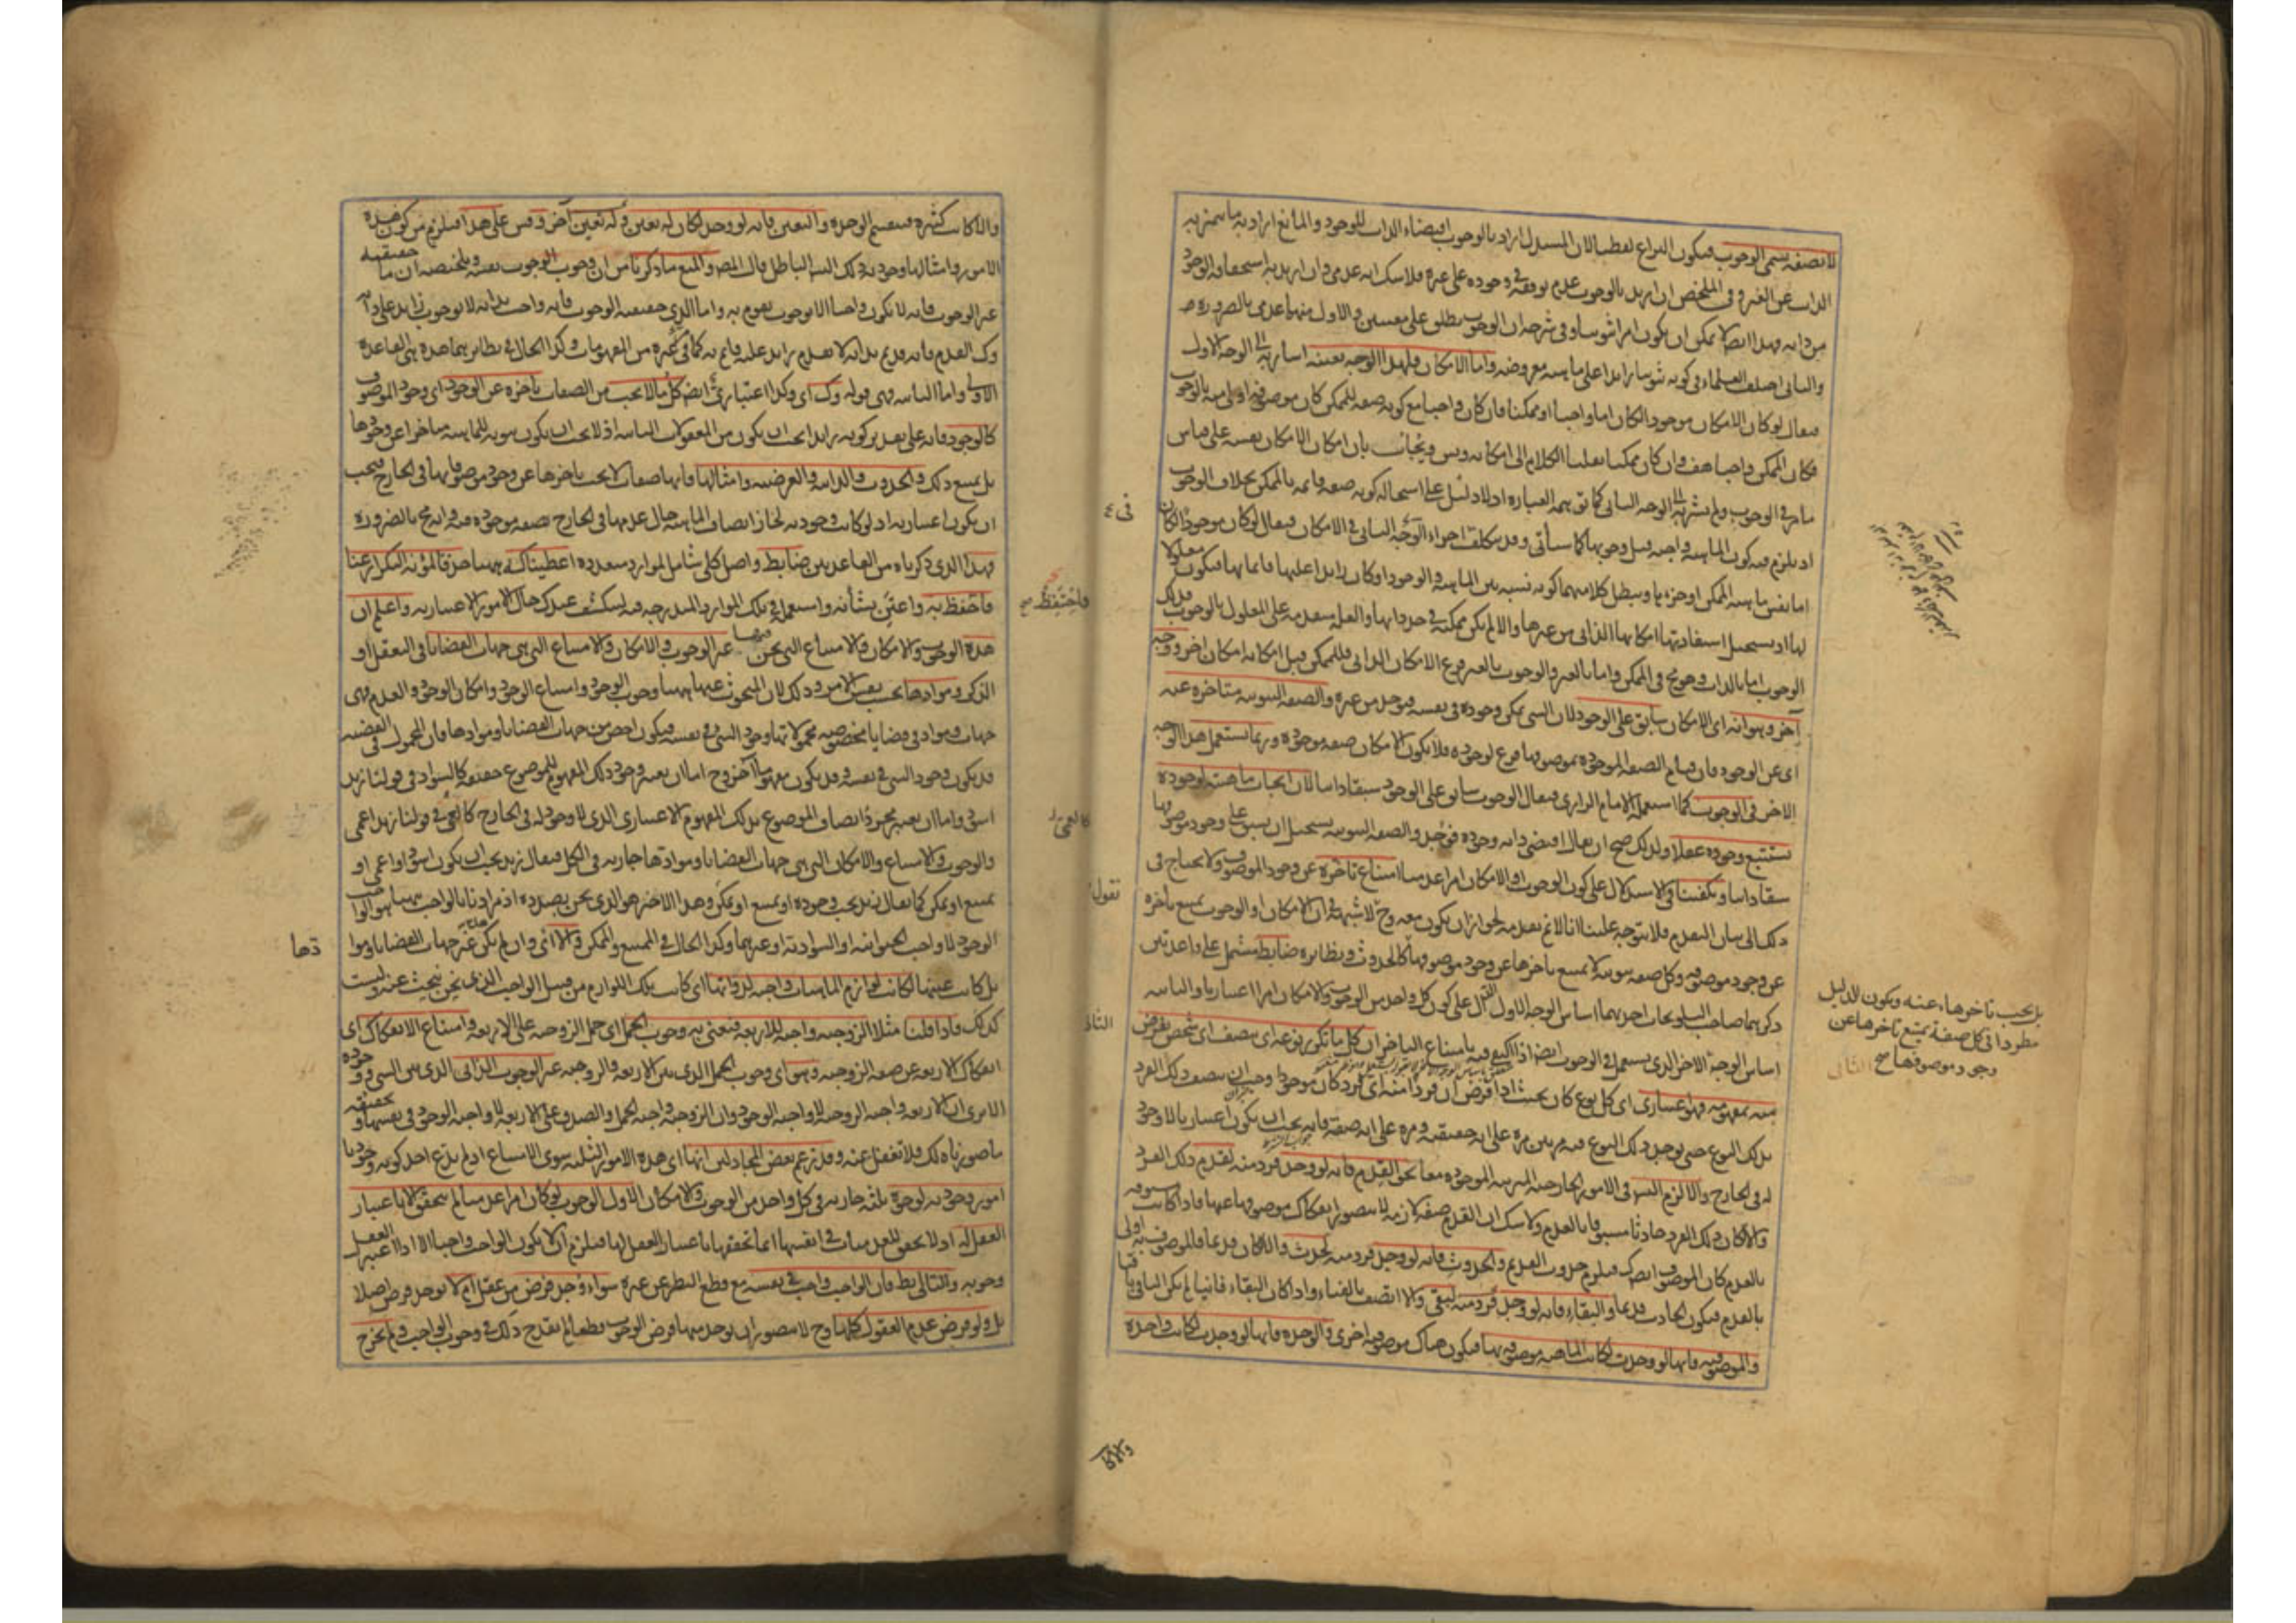 لا بصفة يسمى الوجوب فيكون النزاع لفظيا لان المستدل اراد بالوجوب اقتضاء الذات للوجود والمانع اراد به ما يتميز به
الذات عن الغير وفي الملخص ان اريد بالوجوب عدم توقفه في وجوده على غيره فلا شك انه عدمي وان اريد به استحقاقه الوجود
من ذاته فهذا ايضا لا يمكن ان يكون امرا ثبوتيا وفي شرحه ان الوجوب يطلق على معنيين والاول منهما عدمي بالضرورة
والثاني اختلف العلماء في كونه ثبوتيا زايدا على ماهية معروضه واما الامكان فلهذا الوجه بعينه اشار به الى الوجه الاول
فيقال لو كان الامكان موجودا لكان اما واجبا او ممكنا فان كان واجبا مع كونه صفة للممكن كان موصوفه اولى منه بالوجوب
فكان الممكن واجبا هف وان كان ممكنا نقلنا الكلام الى امكانه وتس ويجاب بان امكان الامكان نفسه على قياس
ما مر في الوجوب ولم يشر به الى الوجه الثاني كما توهمه العبارة اذ لا دليل على استحالة كونه صفة قائمة بالممكن بخلاف الوجوب
اذ يلزم منه كون الماهية واجبة قبل وجوبها كما سيأتي وقد يتكلف اجراء الوجه الثاني في الامكان فيقال لو كان موجودا لكان
اما نفس ماهية الممكن او جزءها ويبطل كلا منهما كونه نسبة بين الماهية والوجود او كان زايدا عليها قائما بها فيكون معلولا
لها اذ يستحيل استفادتها امكانها الذاتي من غيرها والا لم يكن ممكنة في حد ذاتها والعلة متقدمة على المعلول بالوجوب فذلك
الوجوب اما بالذات وهو مح في الممكن واما بالغير والوجوب بالغير فرع الامكان الذاتي فللممكن قبل امكانه امكان آخر ووجه
آخر وهو انه اي الامكان سابق على الوجود لان الشي يمكن وجوده في نفسه فيوجد من غيره والصفة الثبوتية متاخرة عنه
اي عن الوجود فان قيام الصفة الموجودة بموصوفها فرع لوجوده فلا يكون الامكان صفة موجودة وربما يستعمل هذا الوجه
الاخر في الوجوب كما استعمله الامام الرازي فيقال الوجوب سابق على الوجود سبقا ذاتيا لان ايجاب ماهيته لوجوده
تستتبع وجوده عقلا ولذلك صح ان يقال اقتضى ذاته وجوده فوجد والصفة الثبوتية يستحيل ان يسبق على وجود موصوفها
سبقا ذاتيا ويكفينا في الاستدلال على كون الوجوب او الامكان امرا عدميا امتناع تأخره عن وجود الموصوف ولا يحتاج في
ذلك الى بيان التقدم فلا يتوجه علينا انا لا نم تقدمه لجواز ان يكون معه وح لا شبهة في ان الامكان او الوجوب يمتنع تأخره
عن وجود موصوفه وكل صفة ثبوتية لا يمتنع تأخرها عن وجود موصوفها كالحدوث ونظايره ضابط مشتمل على قاعدتين
ذكرهما صاحب التلويحات احديهما اساس الوجه الاول الدال على كون كل واحد من الوجوب والامكان امرا اعتباريا والثانية
اساس الوجه الاخر الذي يستعمل في الوجوب ايضا اذا اكتفى فيه بامتناع التأخر ان كل ما تكرر نوعه اي يتصف اي شخص يفرض
منه بمفهومه فهو اعتباري اي كل نوع كان بحيث اذا فرض ان فردا منه اي فرد كان موجود وجب ان يتصف ذلك الفرد
بذلك النوع حتى يوجد ذلك النوع فيه مرتين مرة على انه حقيقته ومرة على انه صفته فانه يجب ان يكون اعتباريا لا وجود
له في الخارج والا لزم التس في الامور الخارجية المترتبة الموجودة معا نحو القدم فانه لو وجد فرد منه لقدم ذلك الفرد
والا لكان ذلك الفرد حادثا مسبوقا بالعدم ولا شك ان القدم صفة لازمة لا يتصور انفكاك موصوفها عنها فاذا كانت مسبوقة
بالعدم كان الموصوف ايضا كذلك فيلزم حدوث القديم والحدوث فانه لو وجد فرد منه لحدث والا لكان قديما فالموصوف به اولى
بالقدم فيكون الحادث قديما والبقاء فانه لو وجد فرد منه لبقي والا اتصف بالفناء واذا كان البقاء فانيا لم يكن الباقي باقيا
والموصوفية فانها لو وجدت لكانت الماهية موصوفة بها فيكون هناك موصوفية اخرى والوحدة فانها لو وجدت لكانت واحدة
بل يجب تاخرها عنه ويكون الدليل
مطردا في كل صفة يمتنع تاخرها عن
وجود موصوفها صح
والا لكا
والا لكانت كثيرة فينقسم الوحدة والتعين فانه لو وجد لكان له تعين وله تعين آخر وقس على هذا فيلزم من كون هذه
الامور وامثالها وجودية ذلك التس الباطل قال المص والمنع ما ذكرنا من ان وجوب الوجوب نفسه وتلخيصه ان ما حقيقته
غير الوجوب فانه لا يكون واجبا الا بوجوب يقوم به واما الذي حقيقته الوجوب فانه واجب بذاته لا بوجوب زايد على ذاته
وكذا القدم فانه قديم بذاته لا بقدم زايد عليه قائم به كما في غيره من المفهومات وكذا الحال في نظايرهما هذه هي القاعدة
الاولى واما الثانية فهي قوله وكذا اي وكذا اعتباري ايضا كل ما لا يجب من الصفات تأخره عن الوجود اي وجود الموصوف
كالوجود فانه على تقدير كونه زايدا يجب ان يكون من المعقولات الثانية اذ لا يجب ان يكون ثبوته للماهية متأخرا عن وجودها
بل يمتنع ذلك والحدوث والذاتية والعرضية وامثالها فانها صفات لا يجب تأخرها عن وجود موصوفاتها في الخارج فيجب
ان يكون اعتبارية اذ لو كانت وجودية لجاز اتصاف الماهية حال عدمها في الخارج بصفة موجودة فيه وانه مح بالضرورة
فهذا الذي ذكرناه من القاعدتين ضابط واصل كلي شامل لموارد متعددة اعطيناكه ههنا حذفا لمؤنة التكرار عنا
فاحتفظ به واعتن بشأنه واستعمله في تلك الموارد المندرجة فيه لينكشف عندك حال الامور الاعتبارية واعلم ان
هذه الوجوب والامكان والامتناع التي نحن فيها غير الوجوب والامكان والامتناع التي هي جهات القضايا في التعقل او
الذكر وموادها بحسب نفس الامر وذلك لان المبحوث عنها ههنا وجوب الوجود وامتناع الوجود وامكان الوجود والعدم فهي
جهات ومواد في قضايا مخصوصة محمولاتها وجود الشي في نفسه فيكون اخص من جهات القضايا وموادها فان المحمول في القضية
قد يكون وجود الشي في نفسه وقد يكون مفهوما آخر وح اما ان يعتبر وجود ذلك المفهوم للموضوع حقيقة كالسواد في قولنا زيد
اسود واما ان يعتبر مجرد اتصاف الموضوع بذلك المفهوم الاعتباري الذي لا وجود له في الخارج كالعمى في قولنا زيد اعمى
والوجوب والامتناع والامكان التي هي جهات القضايا وموادها جارية في الكل فيقال زيد يجب ان يكون اسود او اعمى او
يمتنع او يمكن كما يقال زيد يجب وجوده او يمتنع او يمكن وهذا الاخير هو الذي نحن بصدده اذ مرادنا بالواجب ههنا هو الواجب
الوجود لا واجب الحيوانية او السوادية او غيرهما وكذا الحال في الممتنع والممكن والا اي وان لم يكن هذه غير جهات القضايا وموادها
بل كانت عينها لكانت لوازم الماهيات واجبة لذواتها اي كانت تلك اللوازم من قبيل الواجب الذي نحن نبحث عنه وليست
كذلك فاذا قلنا مثلا الزوجية واجبة للاربعة فنعني به وجوب الحمل اي حمل الزوجية على الاربعة وامتناع الانفكاك اي
انفكاك الاربعة عن صفة الزوجية وهو اي وجوب الحمل الذي بين الاربعة والزوجية غير الوجوب الذاتي الذي بين الشي ووجوده
الا يرى ان الاربعة واجبة الزوجية لا واجبة الوجود وان الزوجية واجبة الحمل والصدق على الاربعة لا واجبة الوجود في نفسها وتحقيقه
ما صورناه لك فلا تغفل عنه وقد زعم بعض المجادلين انها اي هذه الامور الثلثة سوى الامتناع اذ لم يدع احد كونه وجوديا
امور وجودية لوجوه ثلثة جارية في كل واحد من الوجوب والامكان الاول الوجوب لو كان امرا عدميا لم يتحقق الا باعتبار
العقل له اذ لا تحقق للعدميات في انفسها انما تحققها باعتبار العقل لها فيلزم ان لا يكون الواجب واجبا الا اذا اعتبر العقل
وجوبه والتالي بط فان الواجب واجب في نفسه مع قطع النظر عن غيره سواء وجد فرض من عقل ام لا يوجد فرض اصلا
بل ولو فرض عدم العقول كلها وح لا يتصور ان يوجد منها فرض الوجوب قطعا لم يقدح ذلك في وجوب الواجب ولم يخرج
فاحتفظ صح